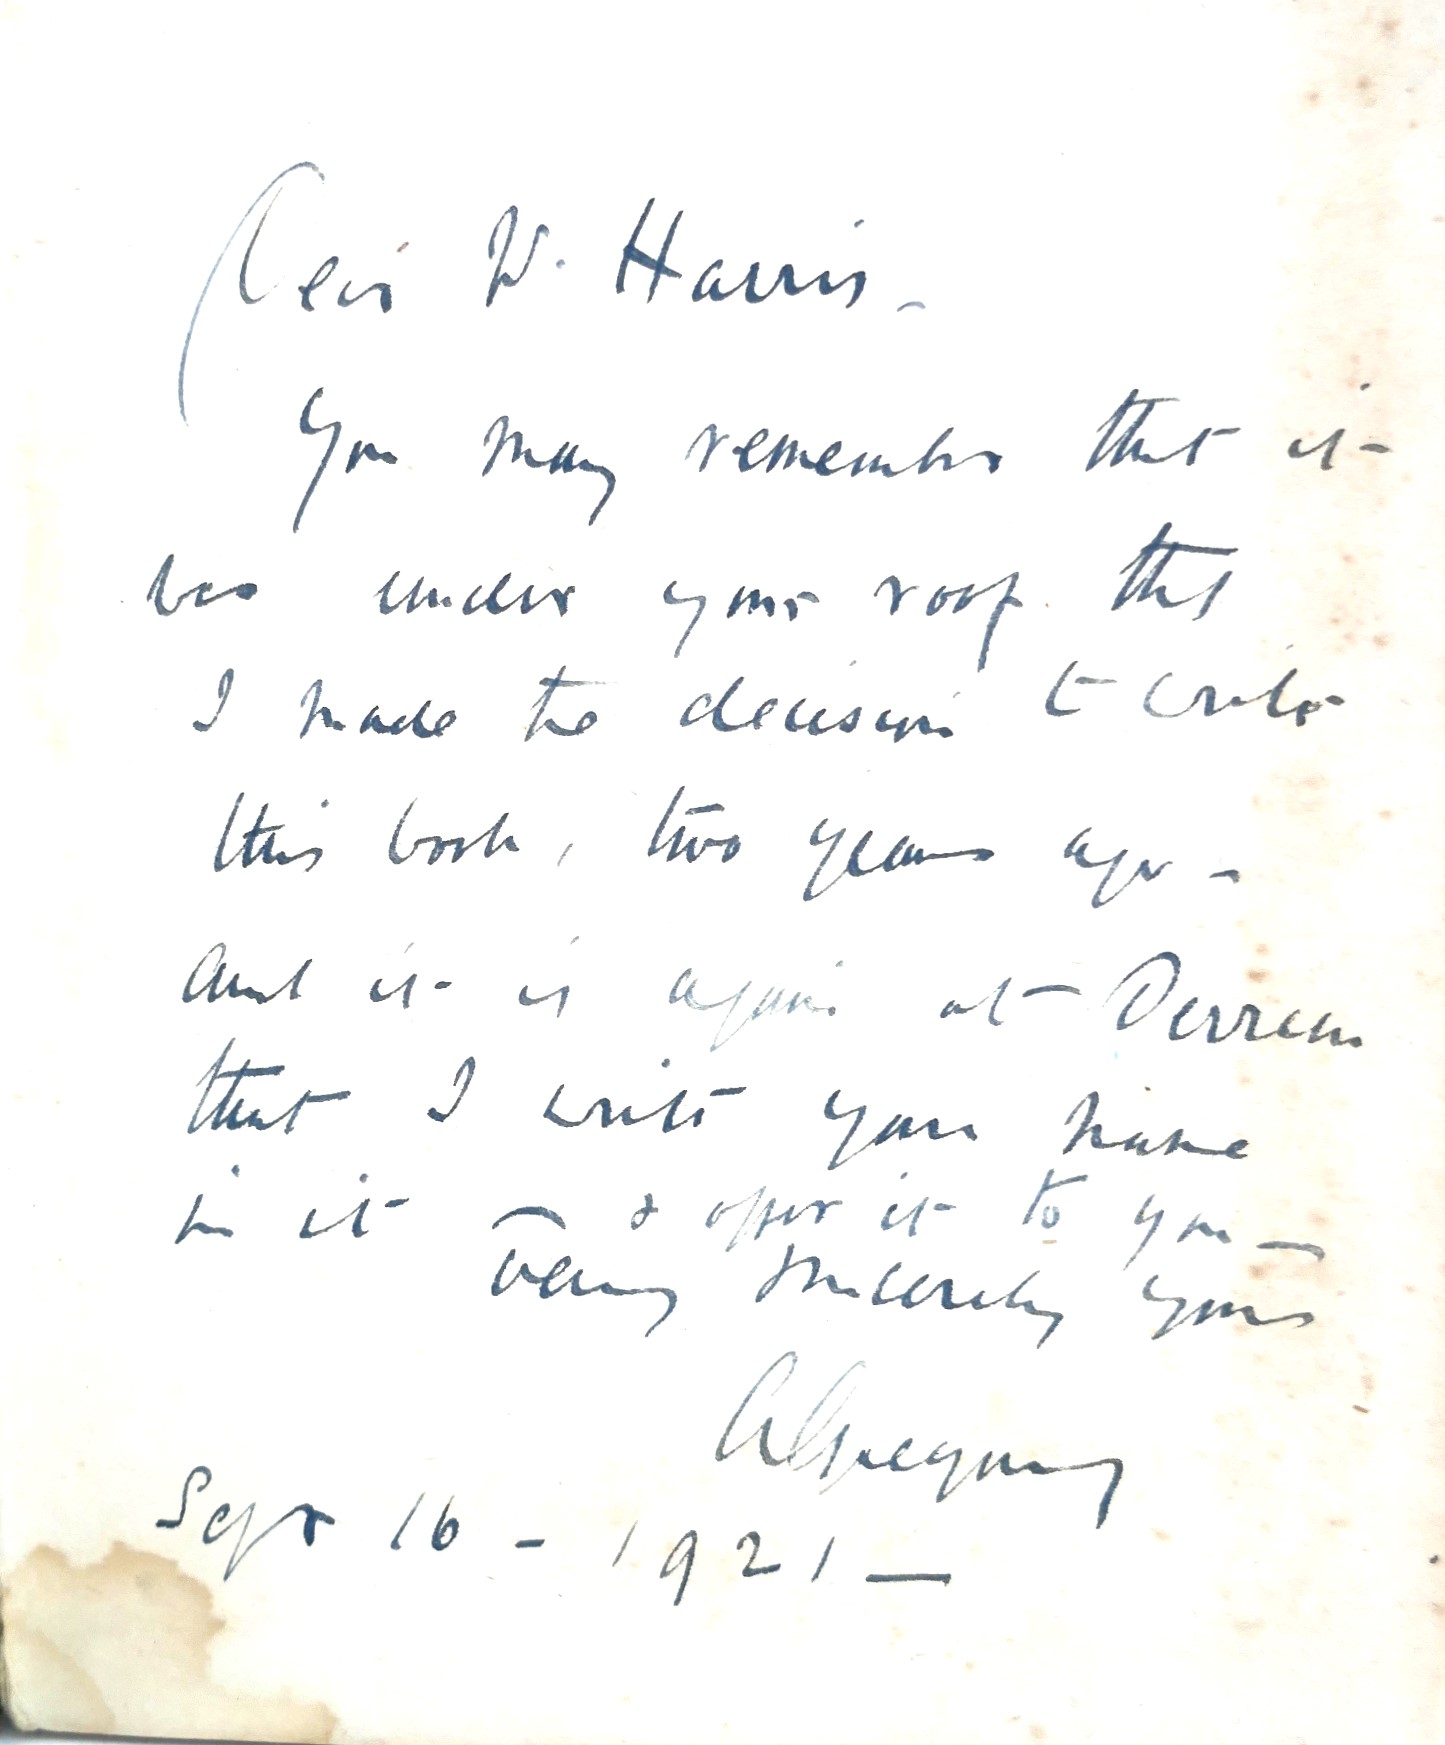 Dear Mr. Harris -
You may remember that it
was under your roof that
I made the decision to write
this book, two years ago -
And it is again at Derreen
that I write your name
in it & offer it to you -
Very sincerely yours
A Gregory
Sept 16 - 1921 -